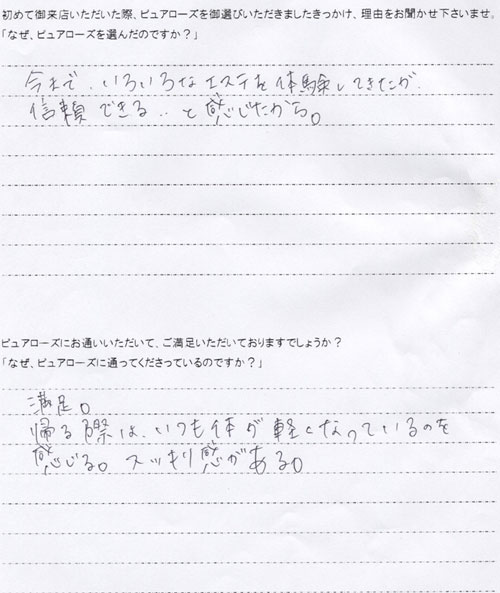 初めて御来店いただいた際、ピュアローズを御選びいただきましたきっかけ、理由をお聞かせ下さいませ。
「なぜ、ピュアローズを選んだのですか？」
今まで、いろいろなエステを体験してきたが
信頼できる‥と感じたから。
ピュアローズにお通いいただいて、ご満足いただいておりますでしょうか？
「なぜ、ピュアローズに通ってくださっているのですか？」
満足。
帰る際は、いつも体が軽くなっているのを
感じる。スッキリ感がある。